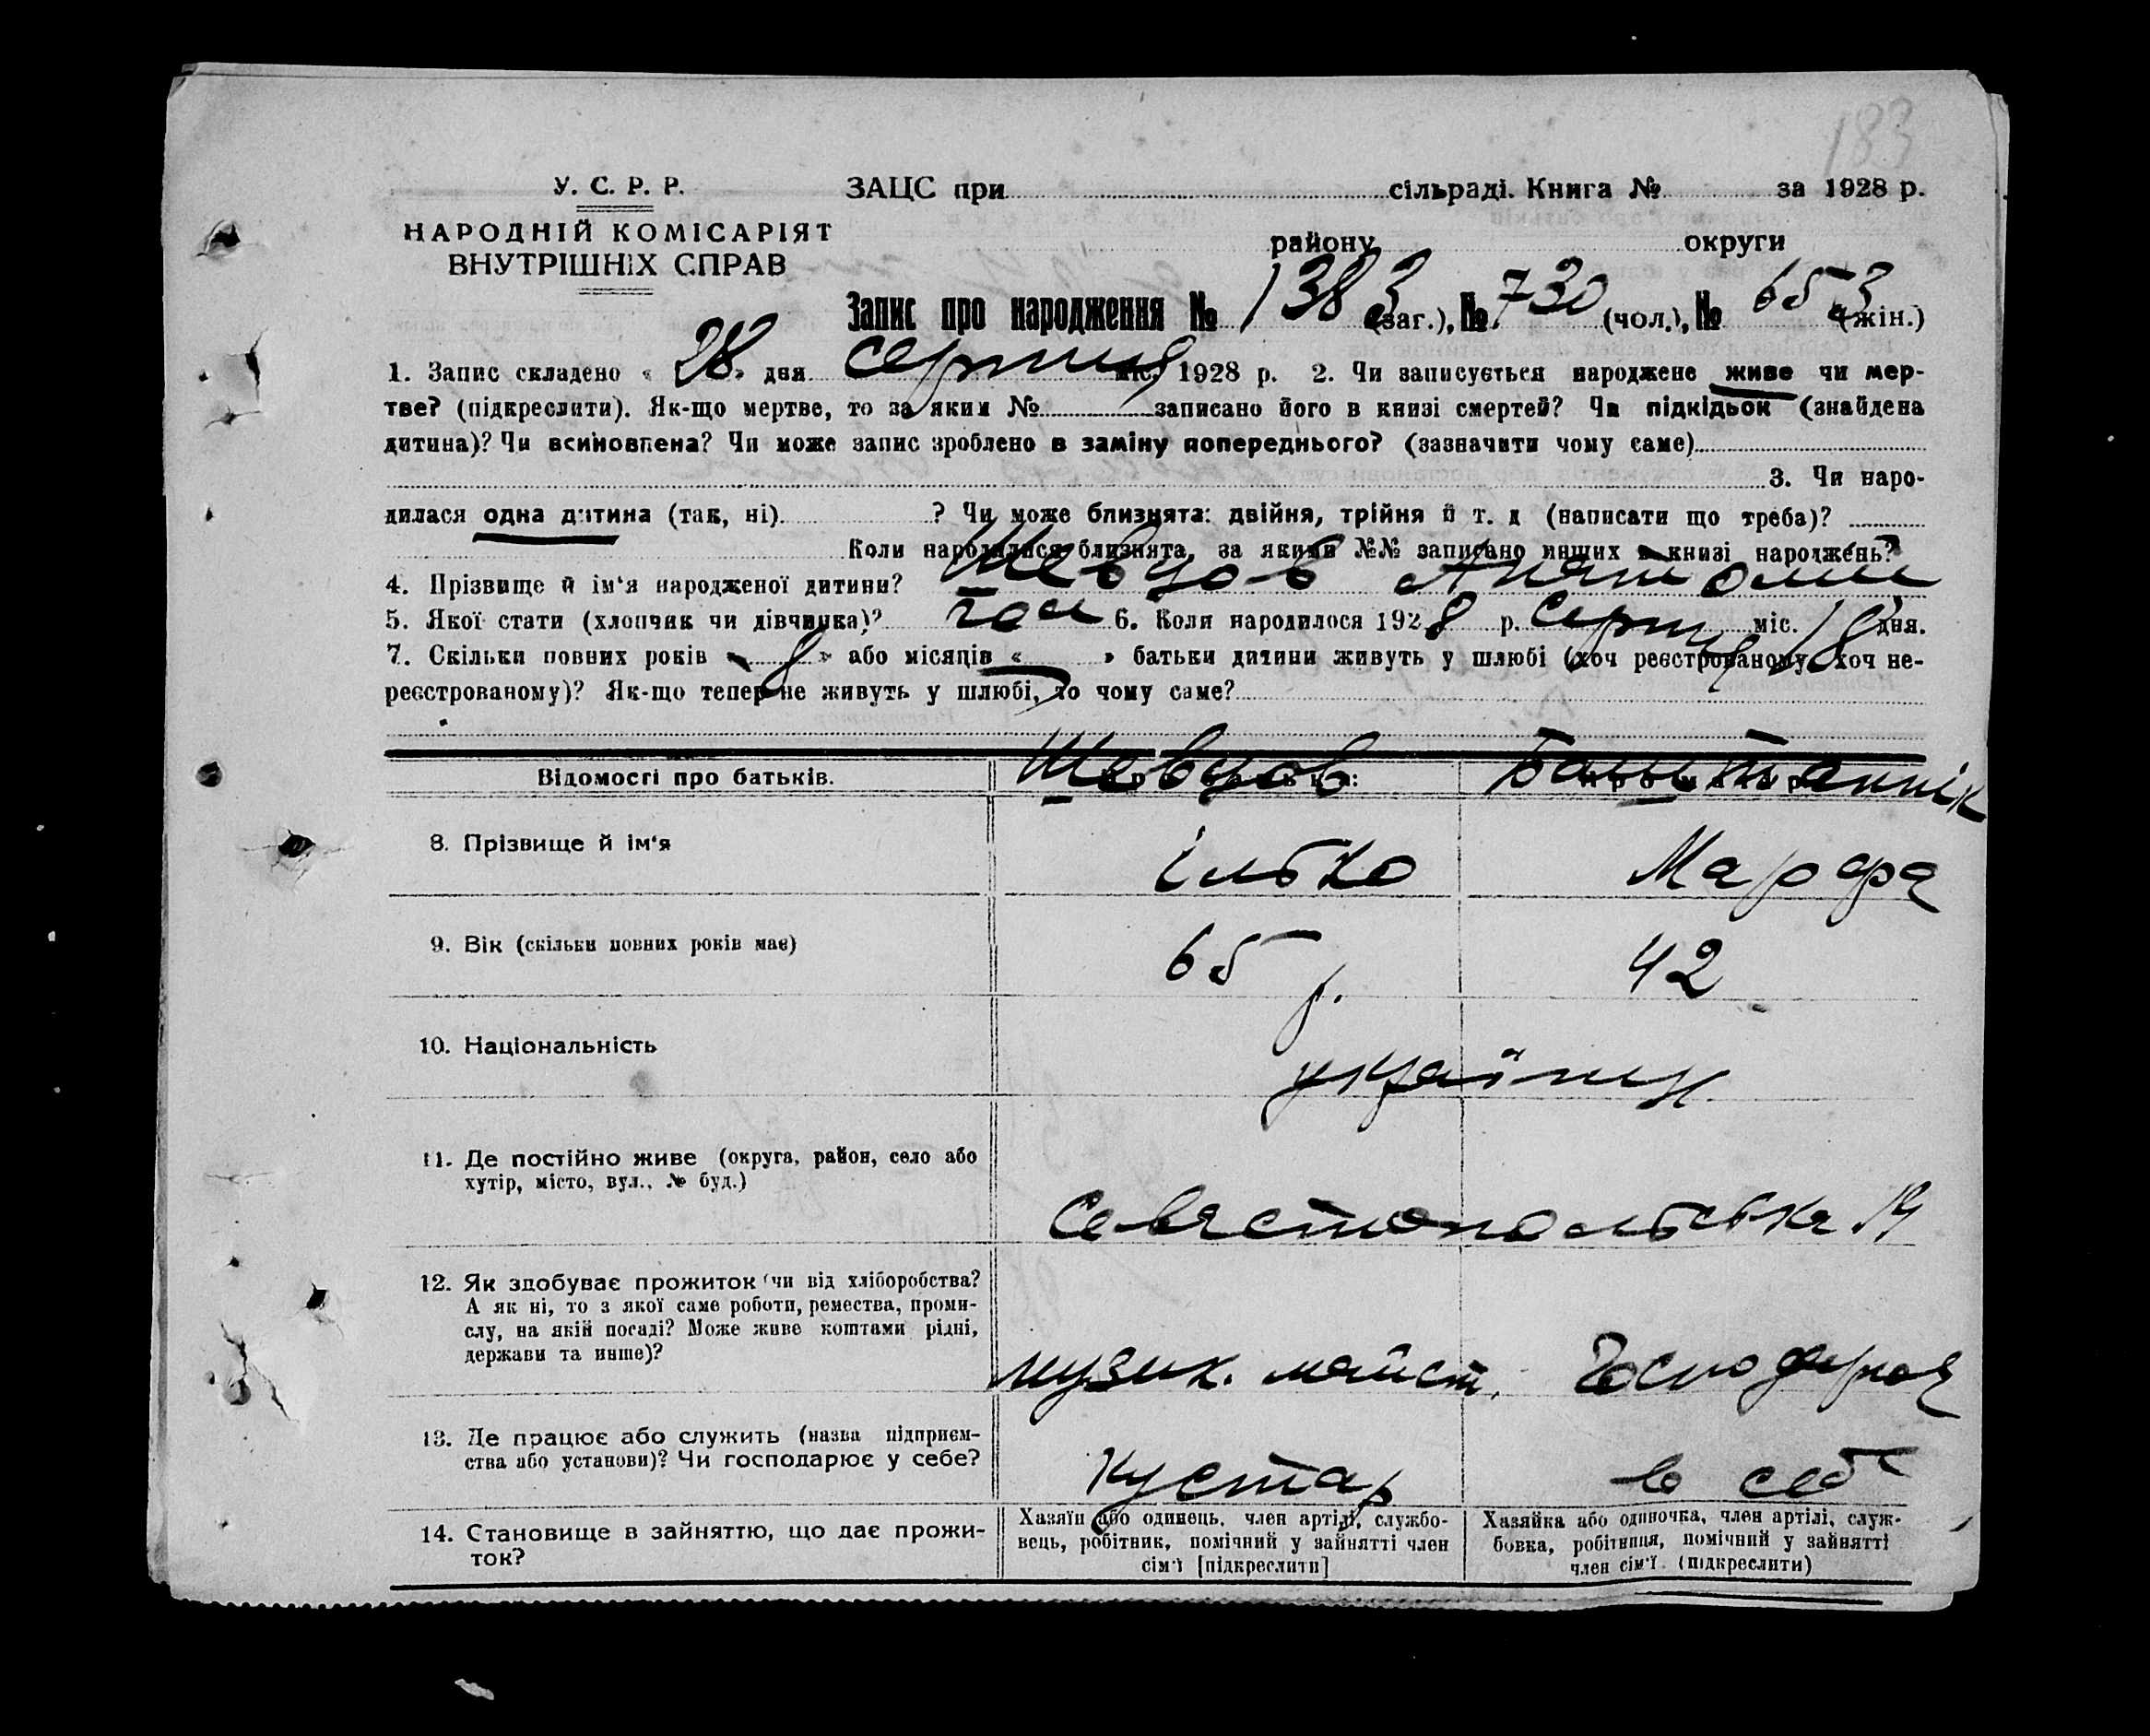 183
У. С. Р. Р.
НАРОДНІЙ КОМІСАРІЯТ
ВНУТРІШНІХ СПРАВ
ЗАЦС при сільраді. Книга № за 1928 р.
району округи
Запис про народження № 1383 (заг.), № 730 (чол.), № 653 (жін.)
1. Запис складено « 28 » дня серпня міс. 1928 р. 2. Чи записується народжене живе чи мер-
тве? (підкреслити). Як-що мертве, то за яким № записано його в книзі смертей? Чи підкідьок (знайдена
дитина)? Чи всиновлена? Чи може запис зроблено в заміну попереднього? (зазначити чому саме)
3. Чи наро-
дилася одна дитина (так, ні) ? Чи може близнята: двійня, трійня й т. д (написати що треба)?
Коли народилися близнята, за якими №№ записано инших в книзі народжень?
4. Прізвище й ім‘я народженої дитини? Шевцов Анатолій
5. Якої статі (хлопчик чи дівчинка)? чол 6. Коли народилося 1928 р. серпня міс. 18 дня.
7. Скільки повних років « 8 » або місяців « » батьки дитини живуть у шлюбі (хоч реєстрованому хоч не-
реєстрованому)? Як-що тепер не живуть у шлюбі, то чому саме?
Відомості про батьків. Шевцов Баштаннік
8. Прізвище й ім‘я ілько Марфа
9. Вік (скільки повних років має) 65 р. 42
10. Національність україн.
11. Де постійно живе (округа, район, село або
хутір, місто, вул., № буд.)
Севастопольська 14
12. Як здобуває прожиток (чи від хліборобства?
А як ні, то з якої саме роботи, ремества, проми-
слу, на якій посаді? Може живе коштами рідні,
держави та инше)?
музик. майст. Господарює
13. Де працює або служить (назва підприєм-
ства або установи)? Чи господарює у себе?
Кустар в себ
14. Становище в зайняттю, що дає прожи-
ток?
Хазяїн або одинець, член артілі, службо-
вець, робітник, помічний у зайнятті член
сім‘ї [підкреслити]
Хазяйка або одиночка, член артілі, служ-
бовка, робітниця, помічний у зайнятті
член сім‘ї (підкреслити)